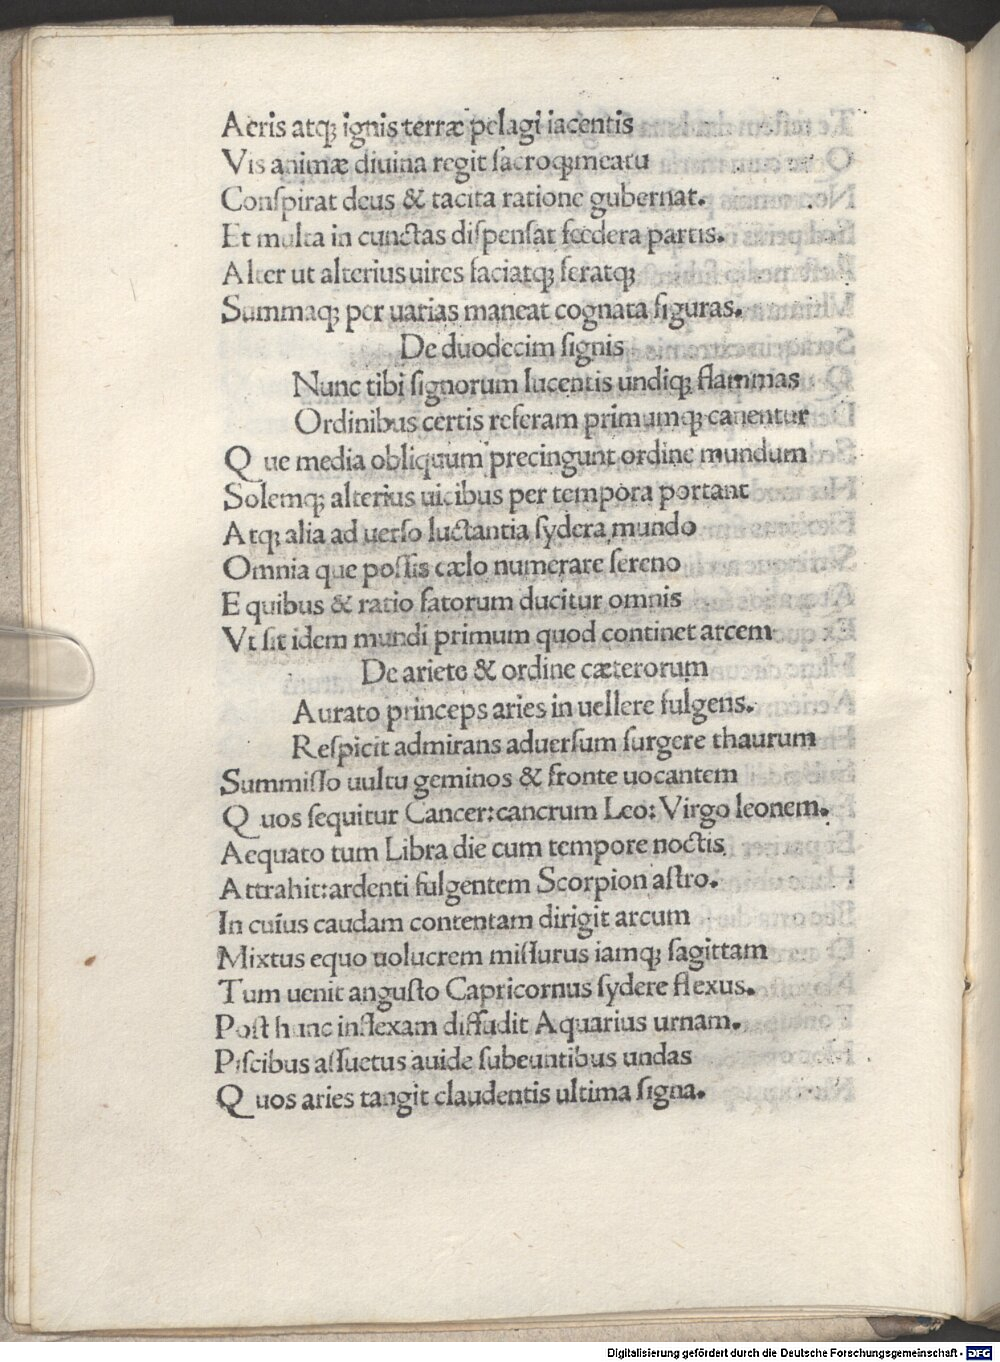 Aeris atqꝫ ignis terræ pelagi iacentis
Vis animæ diuina regit sacroqꝫmeatu
Conspirat deus & tacita ratione gubernat.
Et multa in cunctas dispensat foedera partis.
Alter ut alterius uires faciatqꝫ feratqꝫ
Summaqꝫ per uarias maneat cognata figuras.
De duodecim signis
Nunc tibi signorum lucentis undiqꝫ flammas
Ordinibus certis referam primumqꝫ canentur
Que media obliquum precingunt ordine mundum
Solemqꝫ alterius uicibus per tempora portant
Atqꝫ alia ad uerso luctantia sydera mundo
Omnia que possis cælo numerare sereno
E quibus & ratio fatorum ducitur omnis
Vt sit idem mundi primum quod continet arcem
De ariete & ordine cæterorum
Aurato princeps aries in uellere fulgens.
Respicit admirans aduersum surgere thaurum
Summisso uultu geminos & fronte uocantem
Quos sequitur Cancer:cancrum Leo: Virgo leonem.
Aequato tum Libra die cum tempore noctis
Attrahit:ardenti fulgentem Scorpion astro.
In cuius caudam contentam dirigit arcum
Mixtus equo uolucrem missurus iamqꝫ sagittam
Tum uenit angusto Capricornus sydere flexus.
Post hunc inflexam diffudit Aquarius urnam.
Piscibus assuetus auide subeuntibus undas
Quos aries tangit claudentis ultima signa.
Digitalisierung gefördert durch die Deutsche Forschungsgemeinschaft - DFG